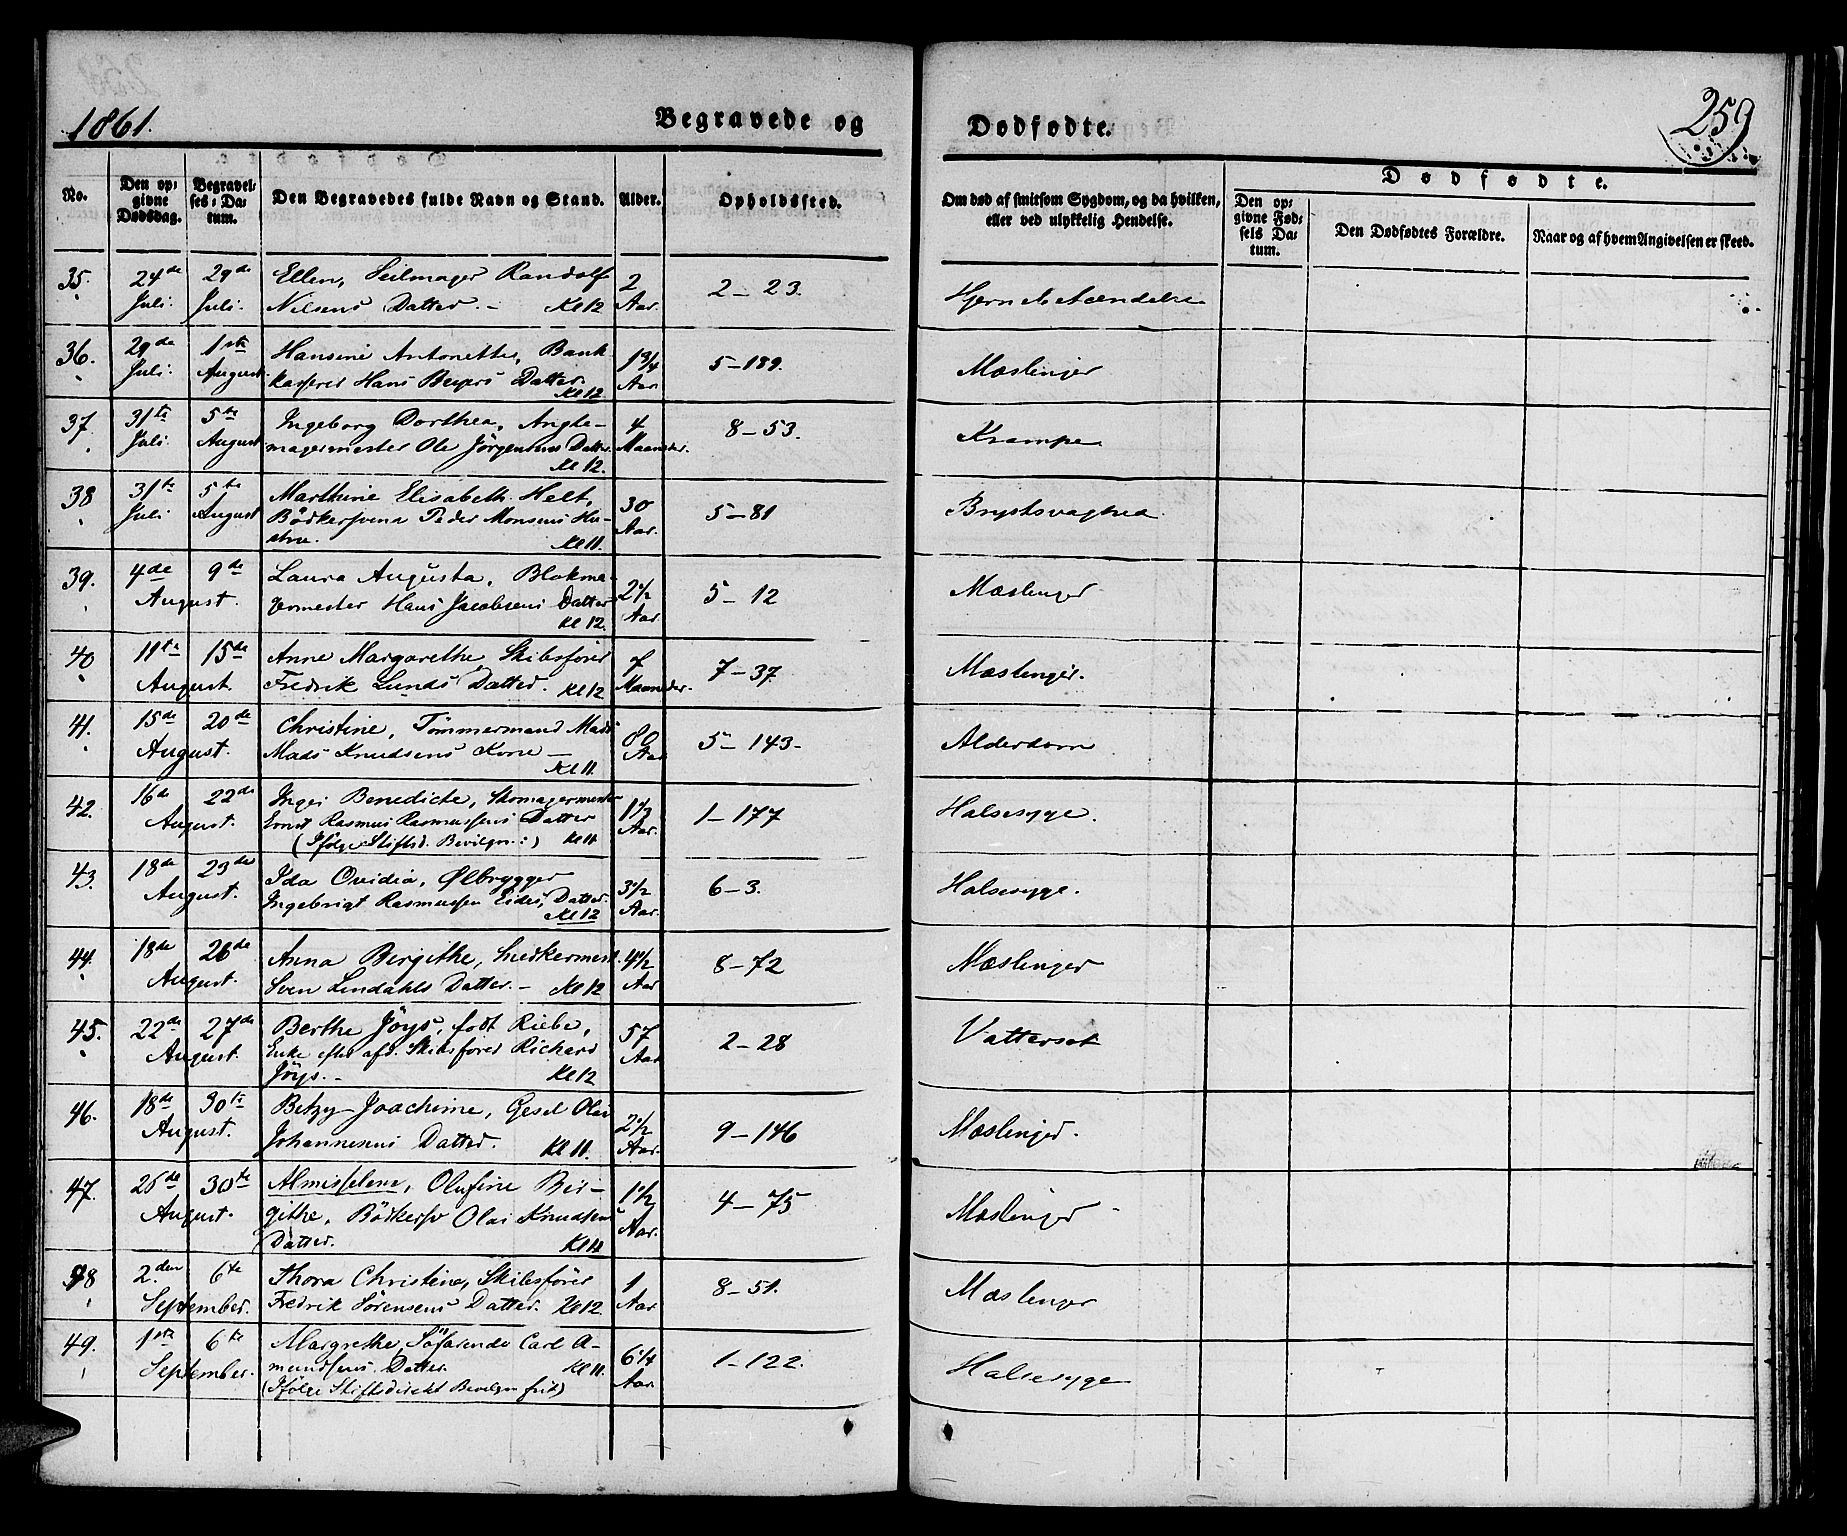 1861.
Begravede og
Dødfødte.
259
No.
Den opgivne Dødsdag.
Begravelses-Datum.
Den Begravedes fulde Navn og Stand.
Alder.
Opholdssted.
Om død af smitsom Sygdom, og da hvilken, eller ved ulykkelig Hendelse.
Dødfødte.
Den opgivne Fødsels Datum.
Den Dødfødtes Forældre.
Naar og af hvem Angivelsen er skeed.
35. 24de Juli. 29de Juli. Ellen, Seilmager Randolf
Nilsens Datter. – Kl 12 2 Aar. 2 – 23.
36. 29de Juli. 1ste August. Hansine Antonette, Bank
kasserer Hans Beyers Datter. Kl 12 1 3/4 Aar. 5 – 189. Mæslinger
37. 31te Juli. 5te August Ingeborg Dorthea,
magermester Ole Jörgensens Datter. Kl 12. 4 Maaneder. 8 – 53. Krampe
38 31te Juli 5te August Marthine Elisabeth Helt,
Bödkersvend Peder Monsens Hu-
stru. Kl 11. 30 Aar. 5 – 81
39. 4de 9de August. Laura Augusta, Blokma-
germester Hans Jacobsens Datter Kl 12. 2 1/2 Aar. 5 – 12 Mæslinger
40 11te 15de August. Anne Margarethe, Skibsförer
Fredrik Lunds Datter. Kl 12 7 Maaneder. 7 – 37. Mæslinger.
41. 15de 20de August. Christine, Tömmermand Mads
Mads Knudsens Kone – Kl 11. 80 Aar 5 – 143 – Alderdom
42. 16de 22de August. Inger Benedicte, Skomagermester
Ernst Rasmus Rasmussens Datter
(Ifölge Stiftsd. Bevilgn:) Kl 11 1 1/3 Aar. 1 – 177 Halsesyge.
43. 18de 23de August. Ida Ovidia, Ølbrygger
Ingebrigt Rasmussen Eides, Datter. Kl 12 3 1/2 Aar. 6 – 3. Halsesyge.
44. 18de 26de August. Anna Bergithe, Snedkermest.
Sven Lindahls Datter. – Kl 12 4 1/2 Aar 8 – 72 Mæslinger
45. 22de 27de August. Berthe Jöys, födt Riebe,
Enke efter afd. Skibsförer Richard
Jöys. – Kl 12 57 Aar 2 – 28 Vattersot
46. 18de 30te August. Betzy Joachime, Gesel Olai
Johannesens Datter. Kl 11. 2 1/2 Aar. 9 – 146 Mæslinger.
47. 26de 30te August. Almisselem, Olufine Ber-
githe, Bödkersv Olai Knudsens
Datter. Kl 11 1 1/2 Aar. 4 – 75 Mæslinger
48 2den 6te September. Thora Christine, Skibsförer
Fredrik Sörensens Datter. Kl 12 1 Aar. 8 – 51. Mæslinger
49. 1ste 6te September. Margrethe, Söfarende Carl A-
mundsens Datter. Kl 11.
(Ifölge Stiftsdirekt Bevilgn frit) 6 1/4 Aar. 1 – 122. Halsesyge